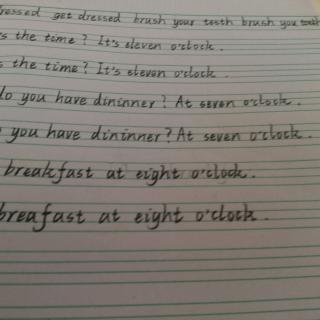 ressed get dressed brush your teeth brush you teeth
s the time? It's eleven o'clock.
s the time? It's eleven o'clock.
do you have dininner? At seven o'clock.
you have dininner? At seven o'clock.
breakfast at eight o'clock.
breafast at eight o'clock.